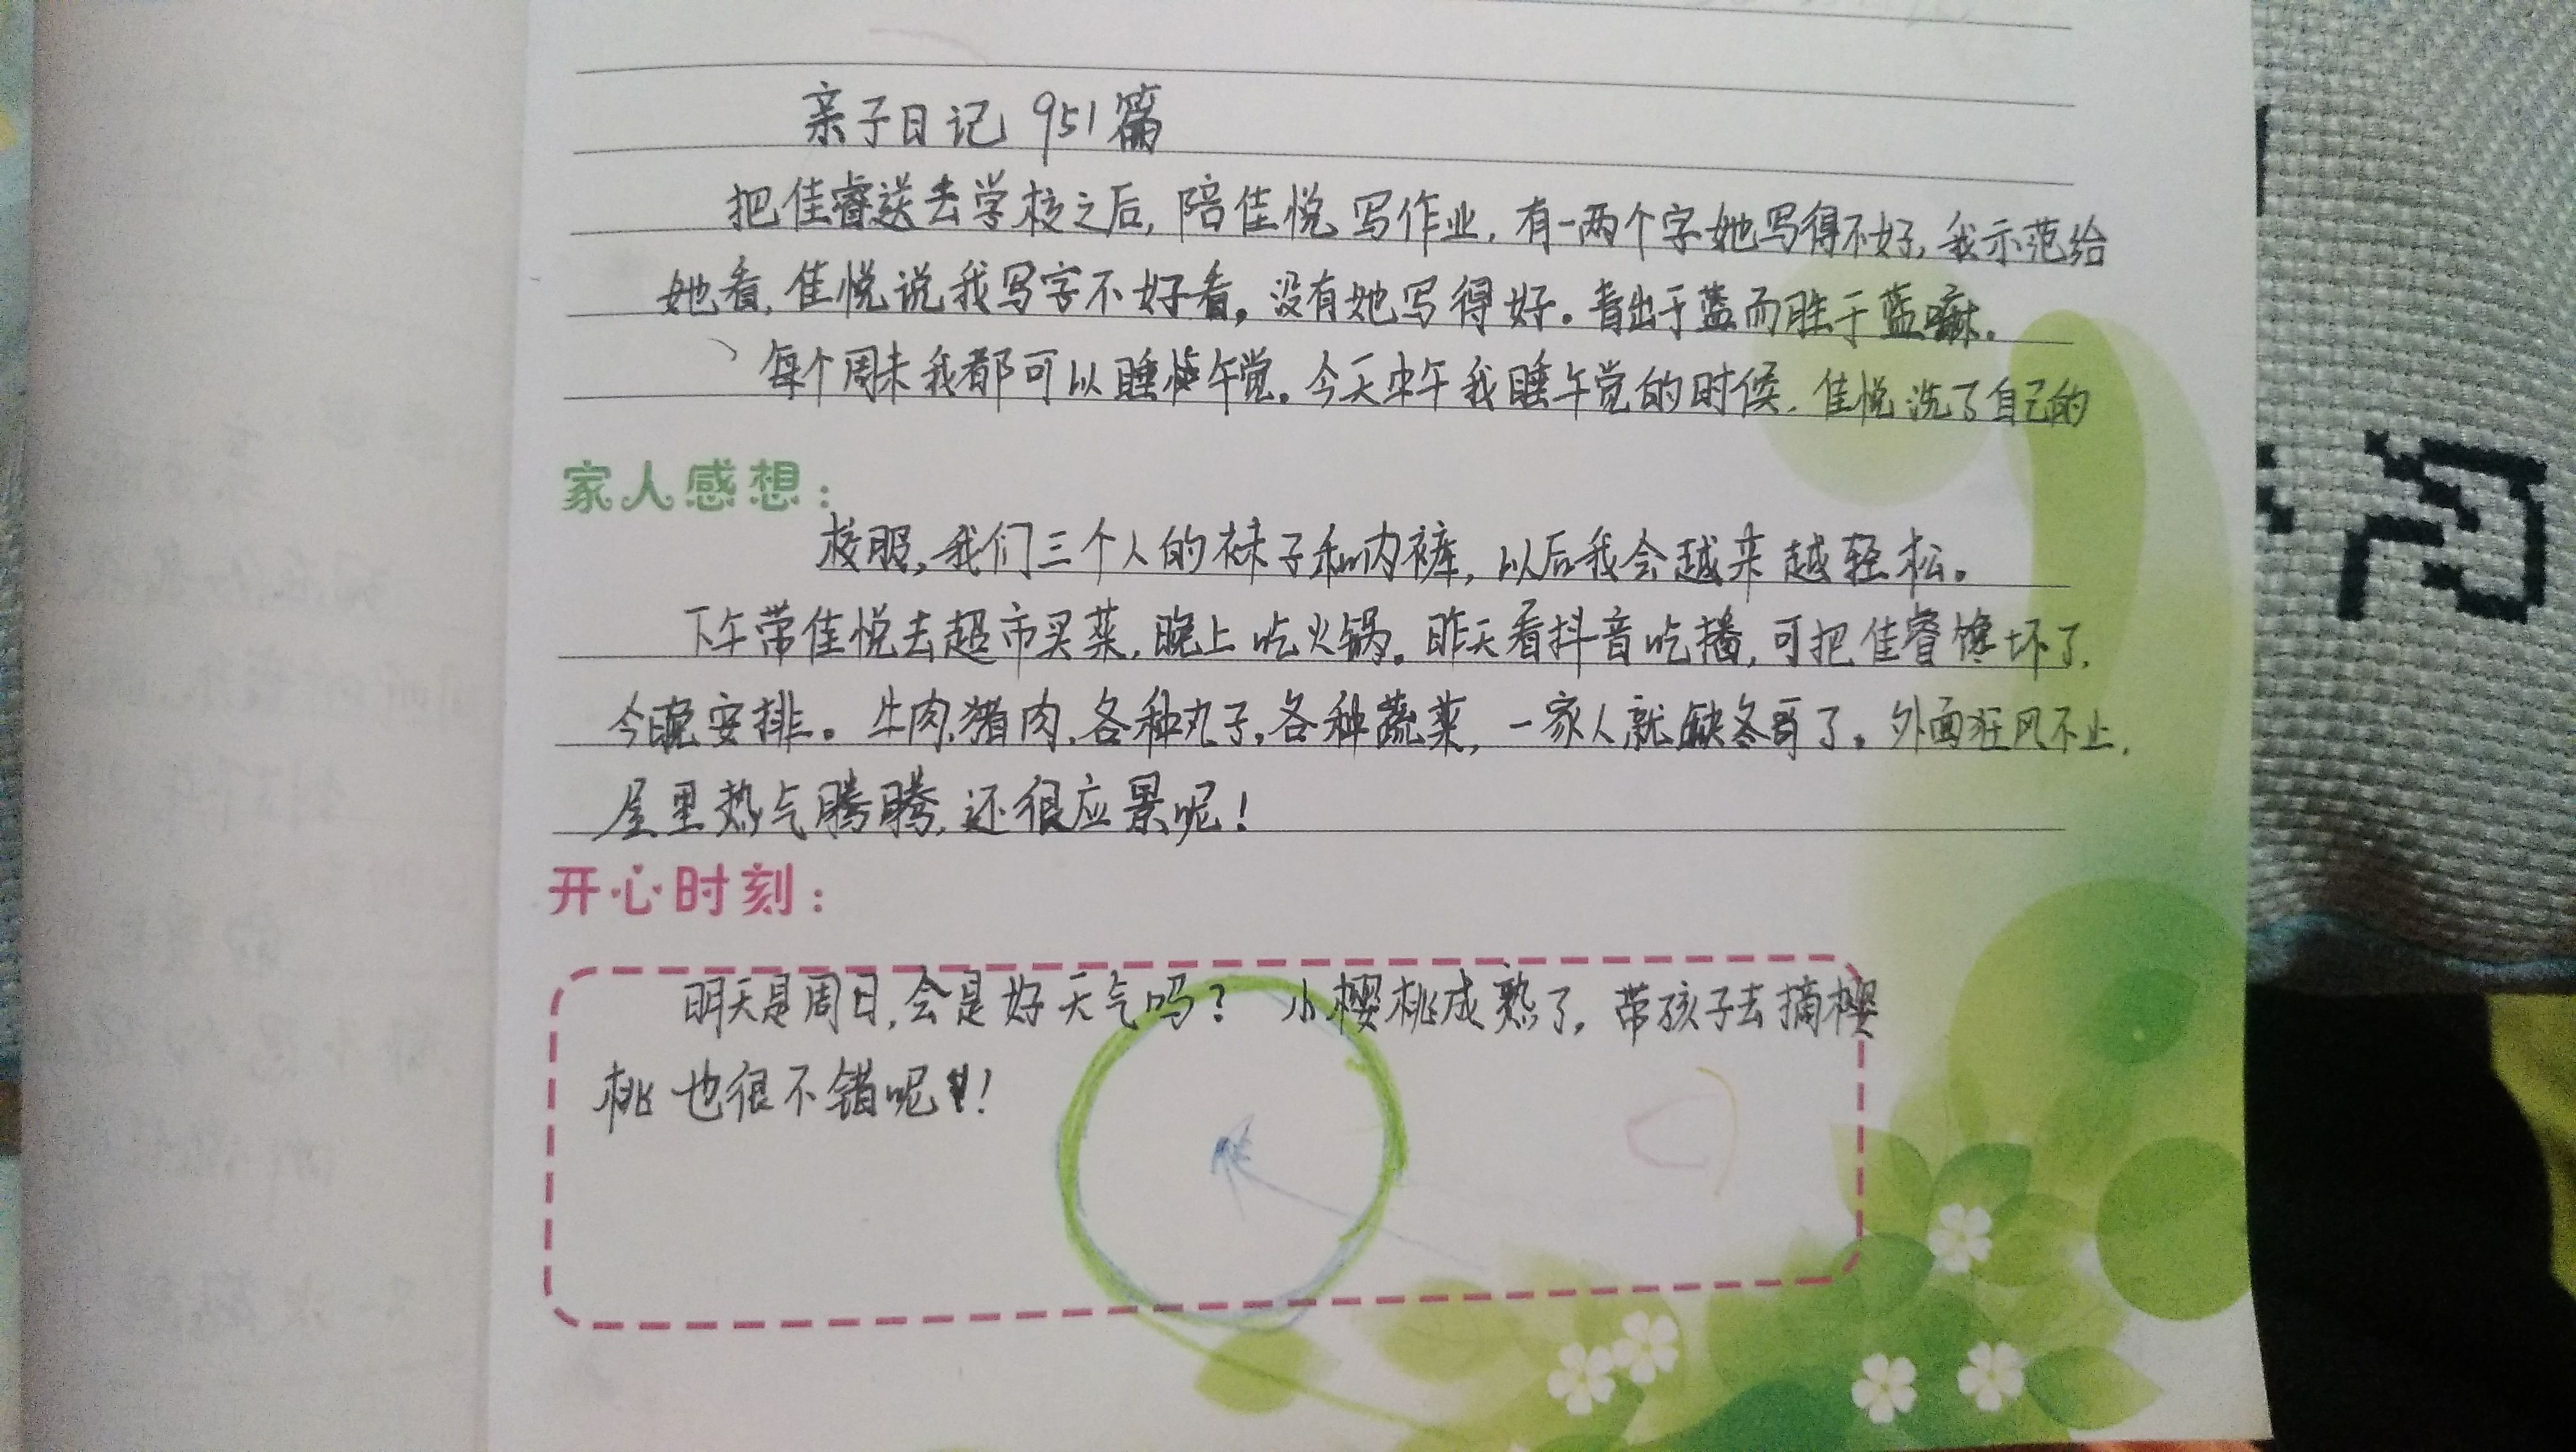 亲子日记 951篇
把佳睿送去学校之后,陪佳悦写作业,有一两个字她写得不好,我示范给
她看,佳悦说我写字不好看。没有她写得好。青出于蓝而胜于蓝嘛。
每个周末我都可以睡午觉。今天中午我睡午觉的时候,佳悦洗了自己的
家人感想:
校服,我们三个人的袜子和内裤,以后我会越来越轻松。
下午带佳悦去超市买菜,晚上吃火锅。昨天看抖音吃播,可把佳睿馋坏了,
今晚安排。牛肉,猪肉,各种丸子,各种蔬菜,一家人就缺冬哥了。外面狂风不止,
屋里热气腾腾,还很应景呢!
开心时刻:
明天是周日,会是好天气吗? 小樱桃成熟了,带孩子去摘樱
桃也很不错呢!